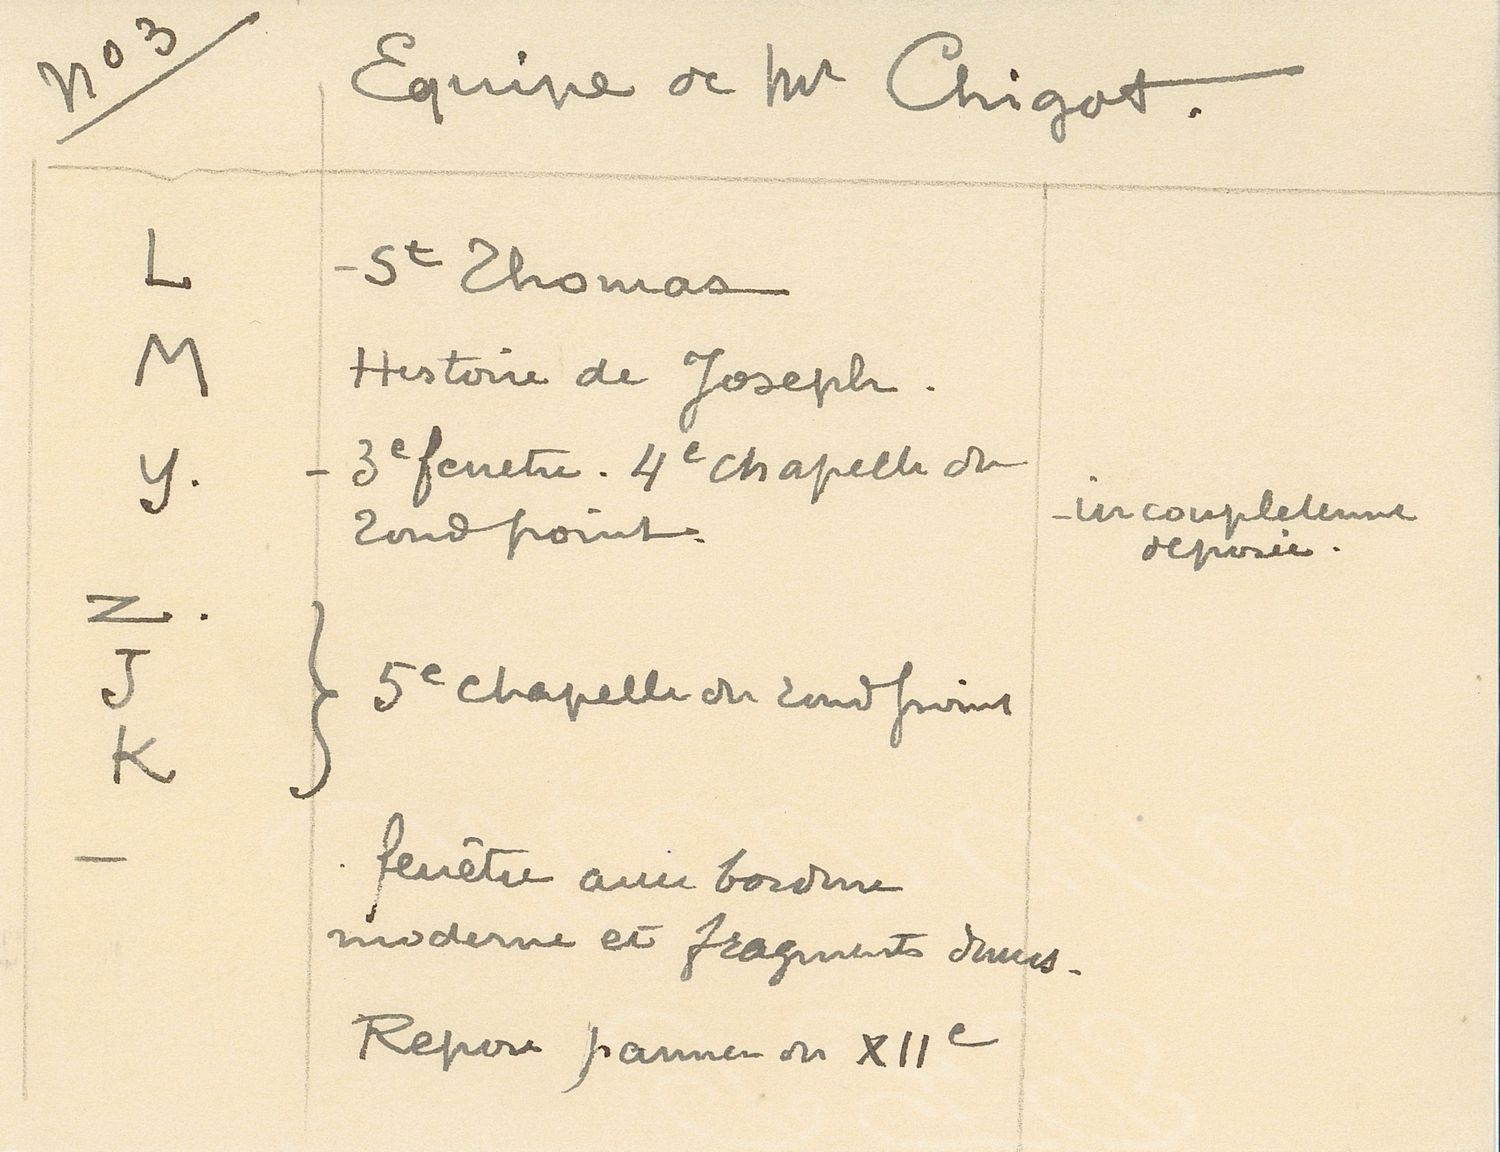 No 3
Equipe de Mr Chigot.
L - St Thomas
M Histoire de Joseph.
Y. - 3e fenetre. 4e chapelle du
rond point.
- incompletement
deposée.
Z.
J
K
5e chapelle du rond point
- fenêtre avec bordure
moderne et fragments divers.
Repose panneau du XIIe